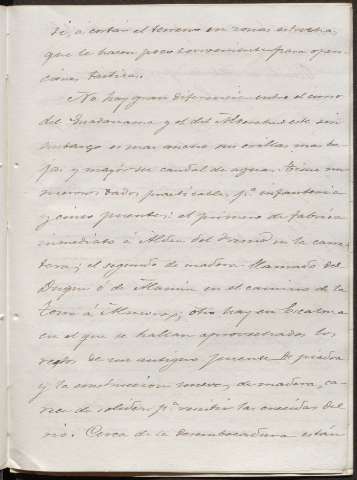 de, á cortar el terreno en zonas estrechas
que le hacen poco conveniente para opera-
ciones tacticas.
No hay gran diferencia entre el curso
del Guadarrama y el del Alberche: este sin
embargo es mas ancho sus orillas mas ba-
jas y mayor su caudal de agua. Tiene nu-
merosos vados practicables pª infanteria
y cinco puentes: el primero de fabrica
inmediato á Aldea del Fresno en la carre-
tera; el segundo de madera llamado del
Duque ó de Alamin en el camino de la
Torre á Almorox; otro hay en Escalona
en el que se hallan aprovechados los
restos de un antiguo puente de piedra
y la construccion nueva, de madera, ca-
rece de solidez pª resistir las crecidas del
rio. Cerca de la desembocadura están